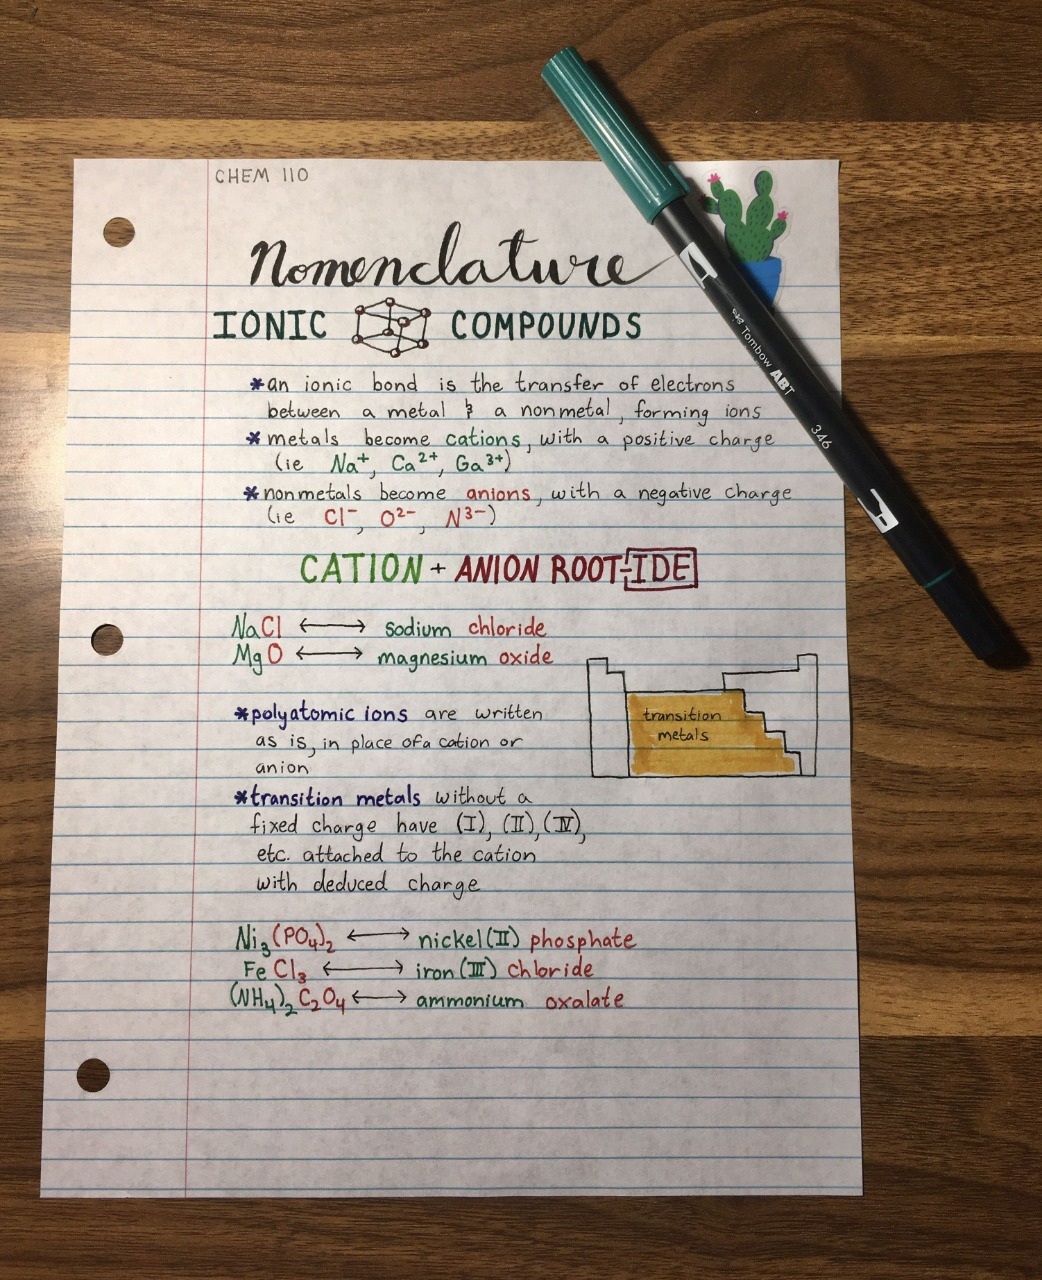 CHEM 110
Nomenclature
IONIC COMPOUNDS
*an ionic bond is the transfer of electrons
between a metal & a nonmetal, forming ions
*metals become cations, with a positive charge
(ie Na⁺, Ca²⁺, Ga³⁺)
*nonmetals become anions, with a negative charge
(ie Cl⁻, O²⁻, N³⁻)
CATION + ANION ROOT-IDE
NaCl ⟷ sodium chloride
MgO ⟷ magnesium oxide
*polyatomic ions are written
as is, in place of a cation or
anion
*transition metals without a
fixed charge have (I), (II), (IV),
etc. attached to the cation
with deduced charge
transition
metals
Ni₃(PO₄)₂ ⟷ nickel(II) phosphate
FeCl₃ ⟷ iron(III) chloride
(NH₄)₂C₂O₄ ⟷ ammonium oxalate
Tombow ABT
346